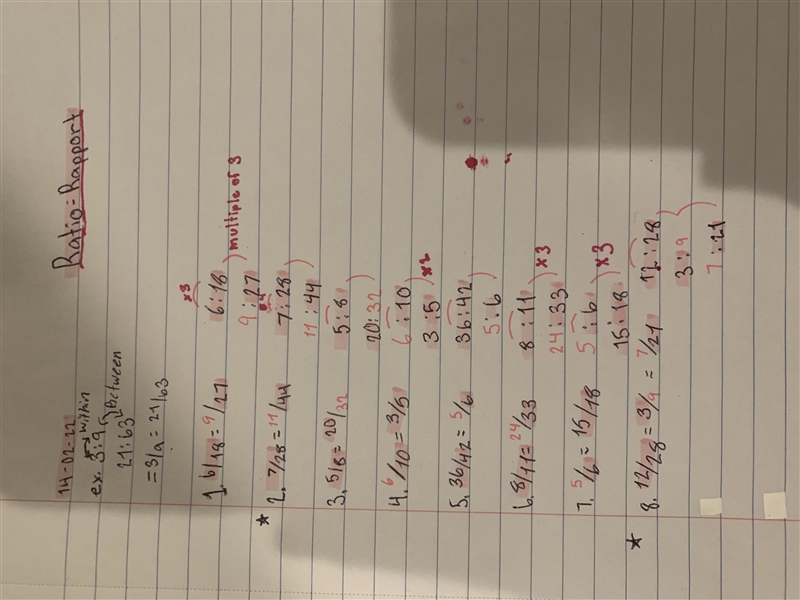 14-02-22 Ratio = Rapport
ex. 3:9 within
21:63 between
= 3/9 = 21/63
x3
1. 6/18 = 9/27 6:18
multiple of 3
9:27
x4
★ 2. 7/28 = 11/44 7:28
11:44
3. 5/8 = 20/32 5:8
20:32
4. 6/10 = 3/5 6:10
x2
3:5
5. 36/42 = 5/6 36:42
5:6
6. 8/11 = 24/33 8:11
x3
24:33
7. 5/6 = 15/18 5:6
x3
15:18
★ 8. 12/28 = 3/9 = 7/21 12:28
3:9
7:21